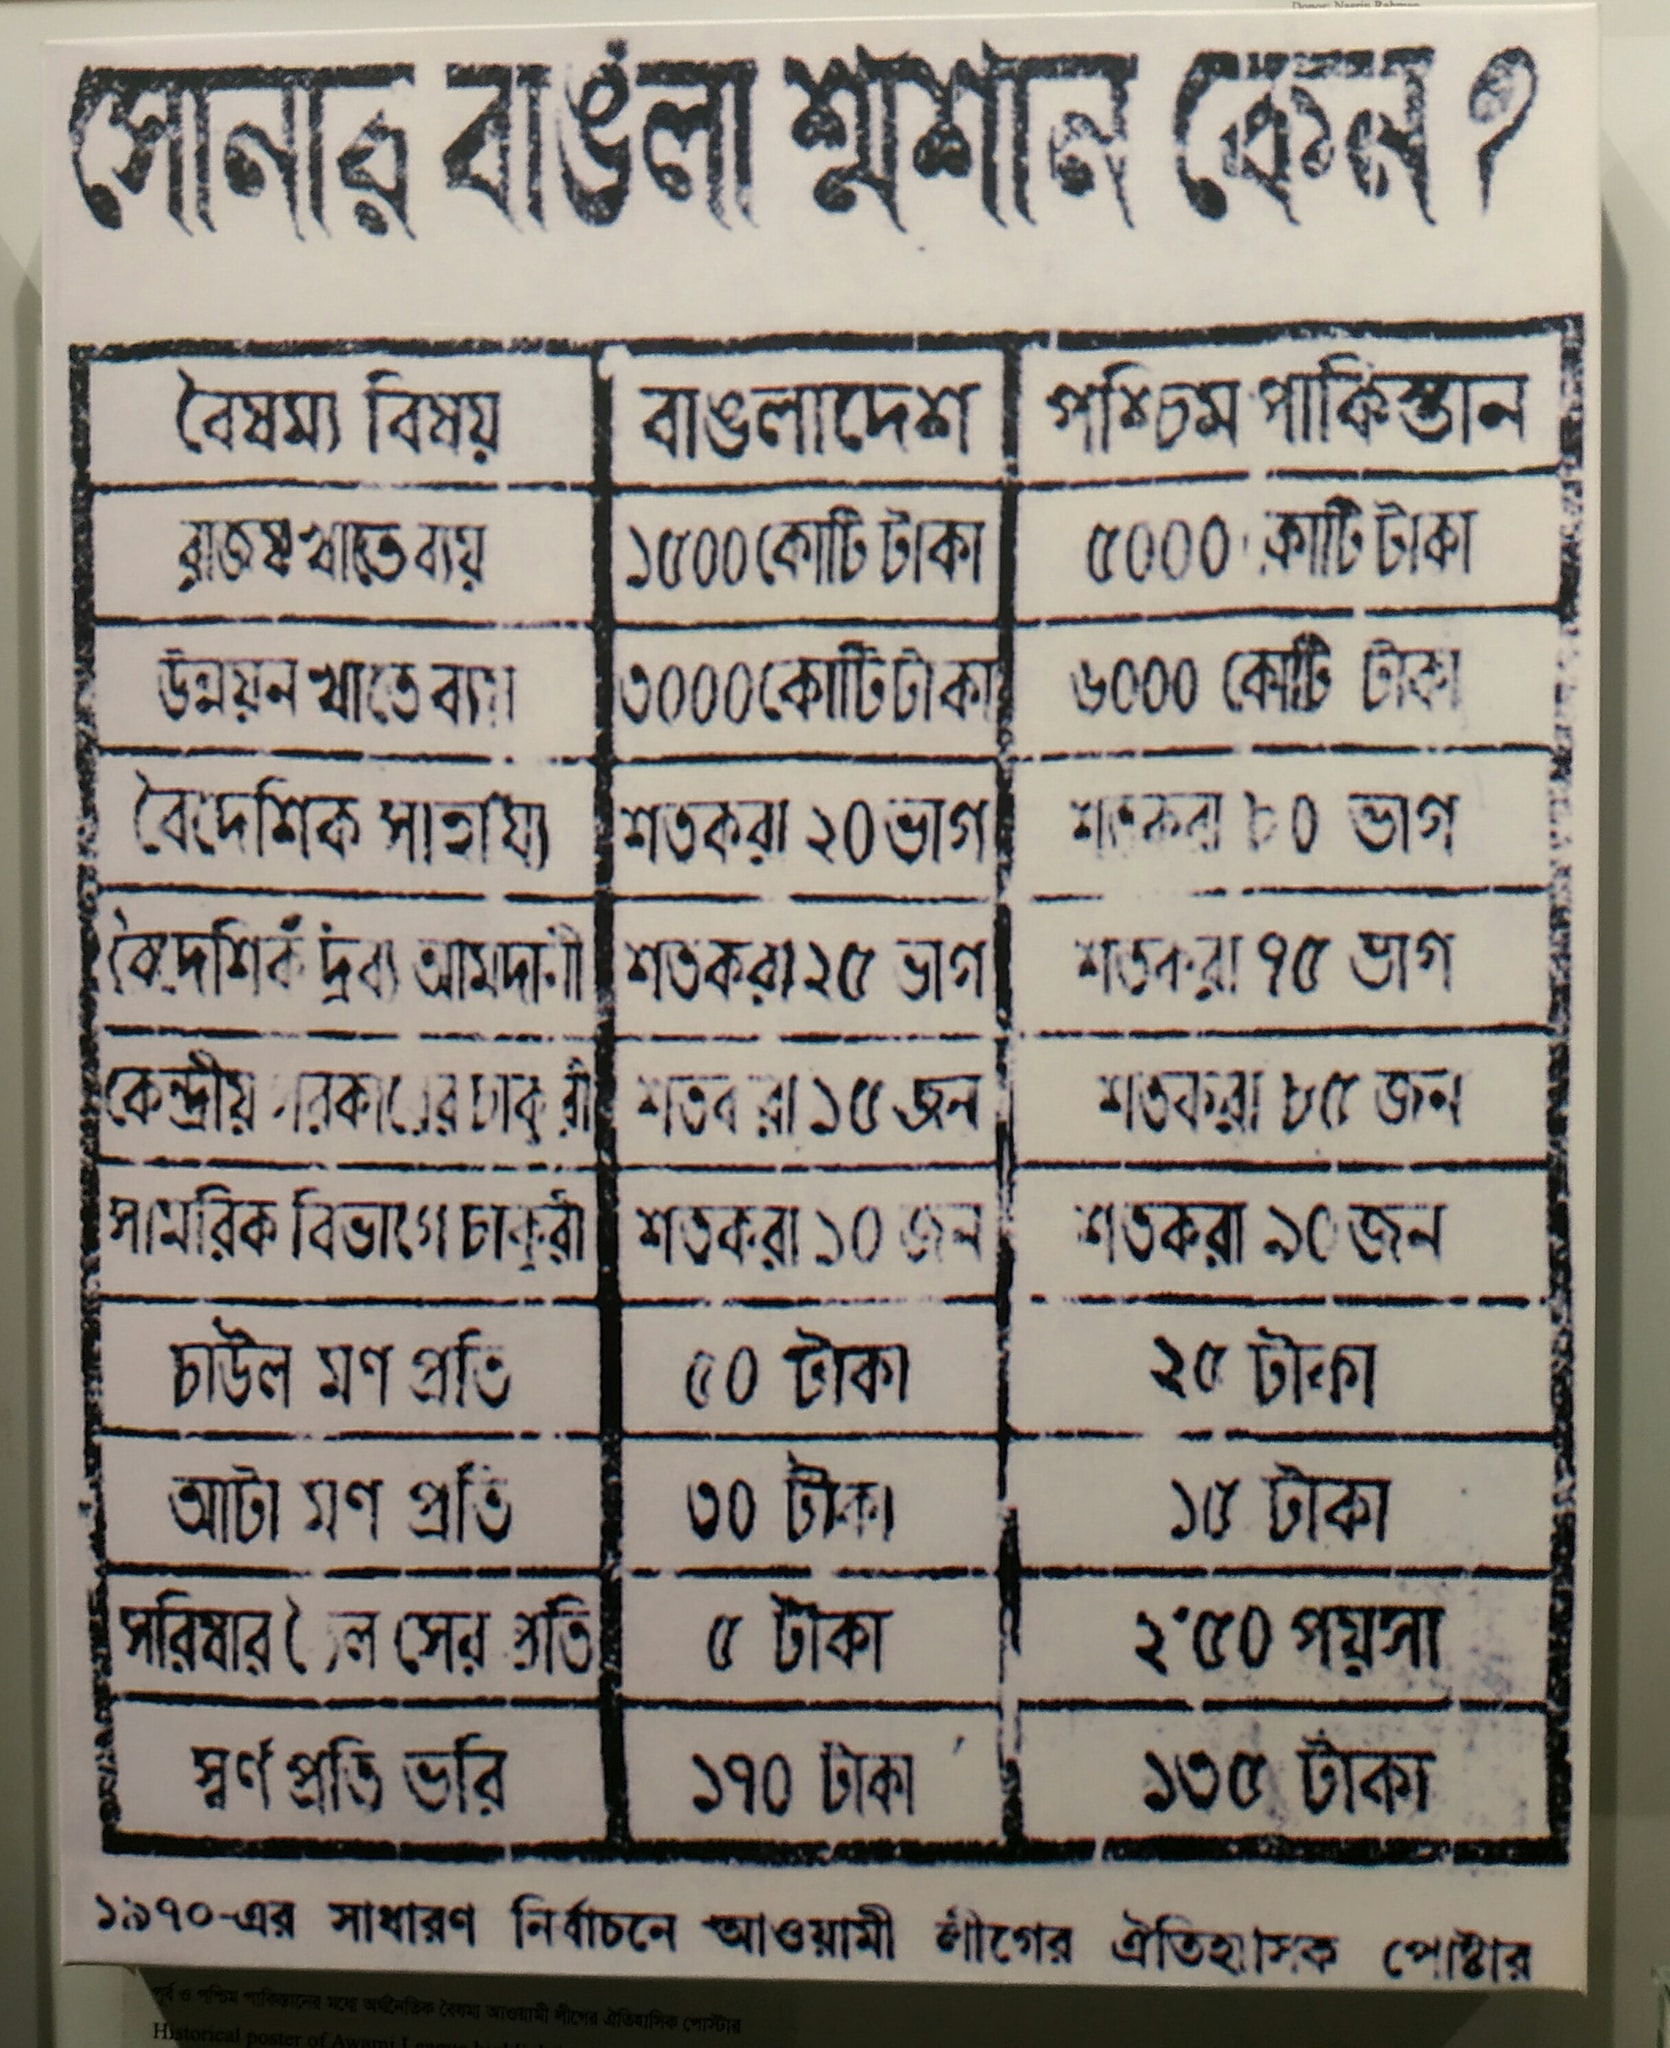 Donor: Nasrin Rahman
সোনার বাঙলা শ্মশান কেন ?
বৈষম্য বিষয় বাঙলাদেশ পশ্চিম পাকিস্তান
রাজস্ব খাতে ব্যয় ১৫০০ কোটি টাকা ৫০০০ কোটি টাকা
উন্নয়ন খাতে ব্যয় ৩০০০ কোটি টাকা ৬০০০ কোটি টাকা
বৈদেশিক সাহায্য শতকরা ২০ ভাগ শতকরা ৮০ ভাগ
বৈদেশিক দ্রব্য আমদানী শতকরা ২৫ ভাগ শতকরা ৭৫ ভাগ
কেন্দ্রীয় সরকারের চাকুরী শতকরা ১৫ জন শতকরা ৮৫ জন
সামরিক বিভাগে চাকুরী শতকরা ১০ জন শতকরা ৯০ জন
চাউল মণ প্রতি ৫০ টাকা ২৫ টাকা
আটা মণ প্রতি ৩০ টাকা ১৫ টাকা
সরিষার তৈল সের প্রতি ৫ টাকা ২·৫০ পয়সা
স্বর্ণ প্রতি ভরি ১৭০ টাকা ১৩৫ টাকা
১৯৭০-এর সাধারণ নির্বাচনে আওয়ামী লীগের ঐতিহাসিক পোষ্টার
পূর্ব ও পশ্চিম পাকিস্তানের মধ্যে অর্থনৈতিক বৈষম্য আওয়ামী লীগের ঐতিহাসিক পোস্টার
Historical poster of Awami League